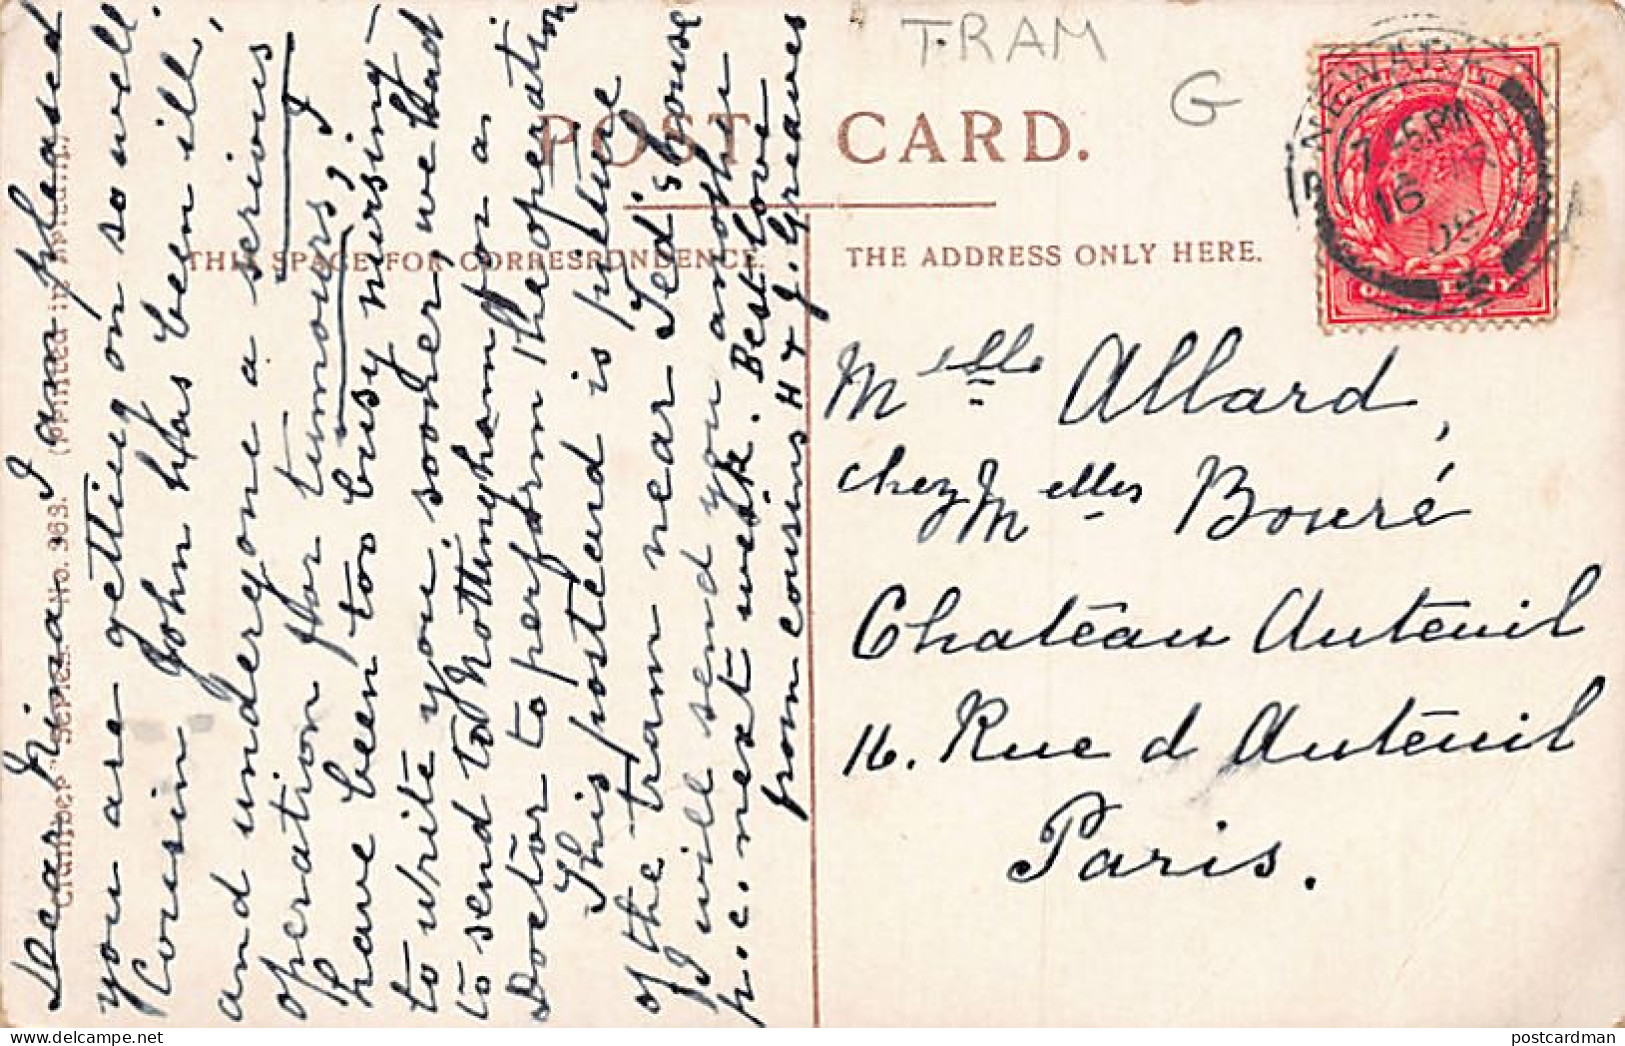 TRAM
G
POST CARD.
THIS SPACE FOR CORRESPONDENCE.
THE ADDRESS ONLY HERE.
NEWARK
7.45 PM
16
08
Dear I am pleased
you are getting on so well.
Cousin John has been ill,
and undergone a serious
operation for tumours, I
have been too busy nursing
to write you sooner, we had
to send to Nottingham for a
Doctor to perform the operation
This postcard is picture
of the tram near Tedish house
I will send you another
p.c. next week. Best love
from cousins H & J. Greaves
Melle Allard,
chez Melles Bouré
Chateau Auteuil
16. Rue d Auteuil
Paris.
Clumber Series No. 363. (Printed in
postcardman